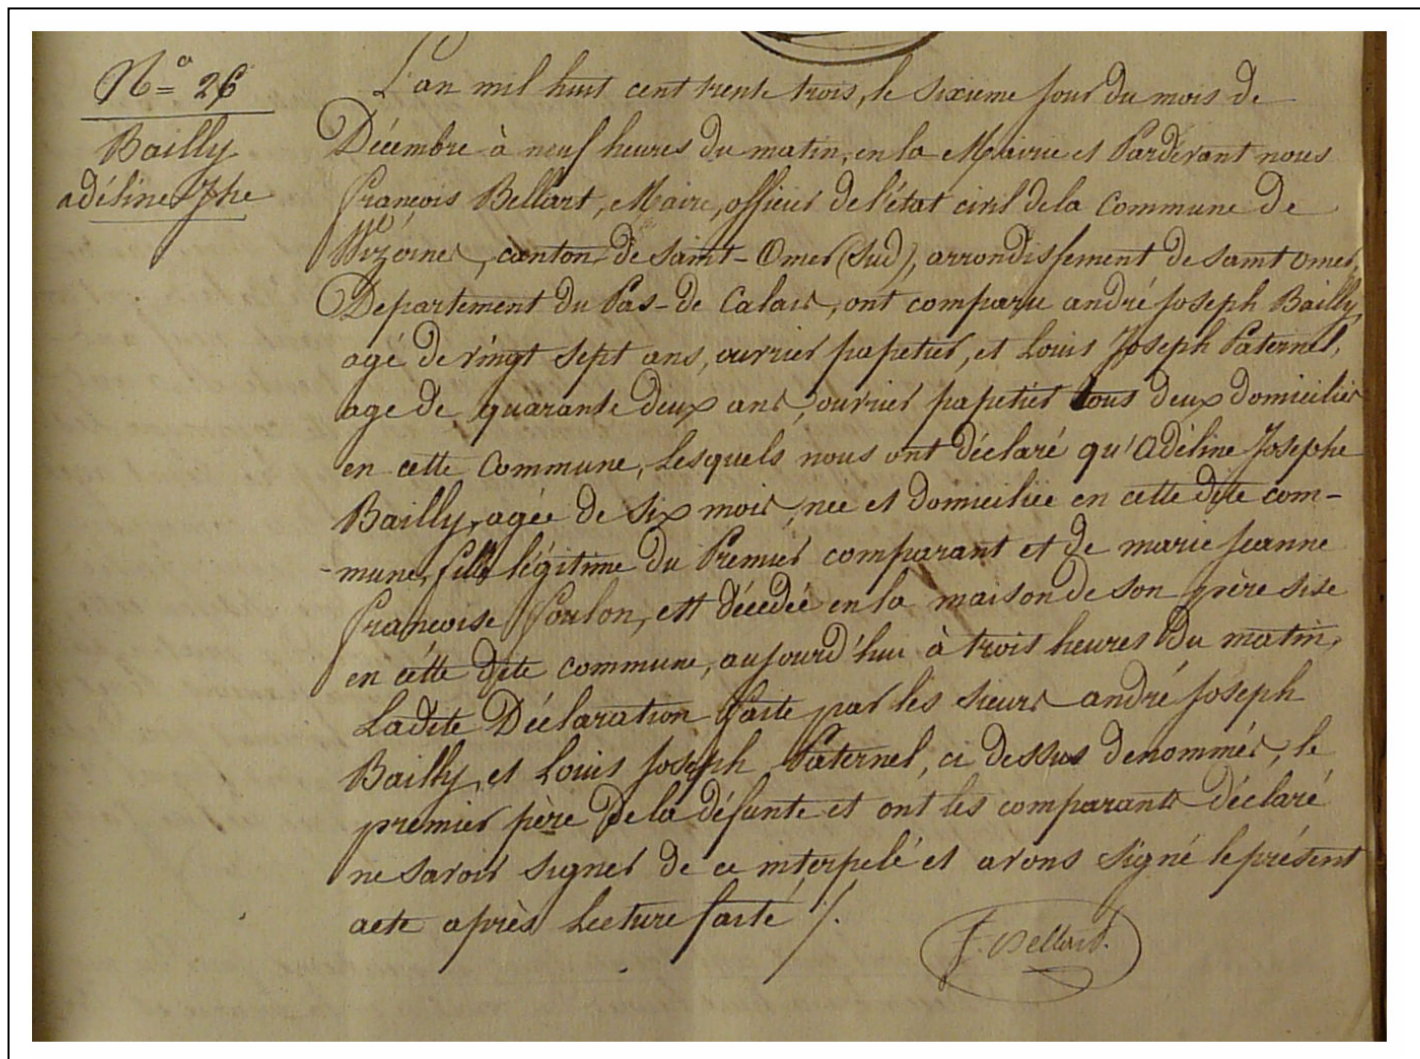 N° = 26
Bailly
adéline Jphe
L'an mil huit cent trente trois, le sixieme jour du mois de
Décembre à neuf heures du matin, en la Mairie et Pardevant nous
françois Bellart, Maire, officier de l'état civil de la Commune de
Wizernes, canton de saint-Omer (Sud), arrondissement de saint omer,
Departement du Pas-de Calais, ont comparu andré joseph Bailly,
agé de vingt sept ans, ouvrier papetier, et Louis Joseph Paternel,
age de quarante deux ans, ouvrier papetier tous deux domiciliés
en cette Commune, Lesquels nous ont déclaré qu'adéline Josephe
Bailly, agée de six mois, nee et domiciliée en cette dite com-
-mune, fille légitime du Premier comparant et de marie jeanne
françoise foulon, est décedée en la maison de son père sise
en cétte dite commune, aujourd'hui à trois heures du matin,
Ladite Déclaration faite par les sieurs andré joseph
Bailly, et Louis joseph Paternel, ci dessus denommés, le
premier père de la défunte et ont les comparants déclaré
ne savoir signer de ce interpelé et avons signé le présent
acte après Lecture faite ./.
f. Bellart.